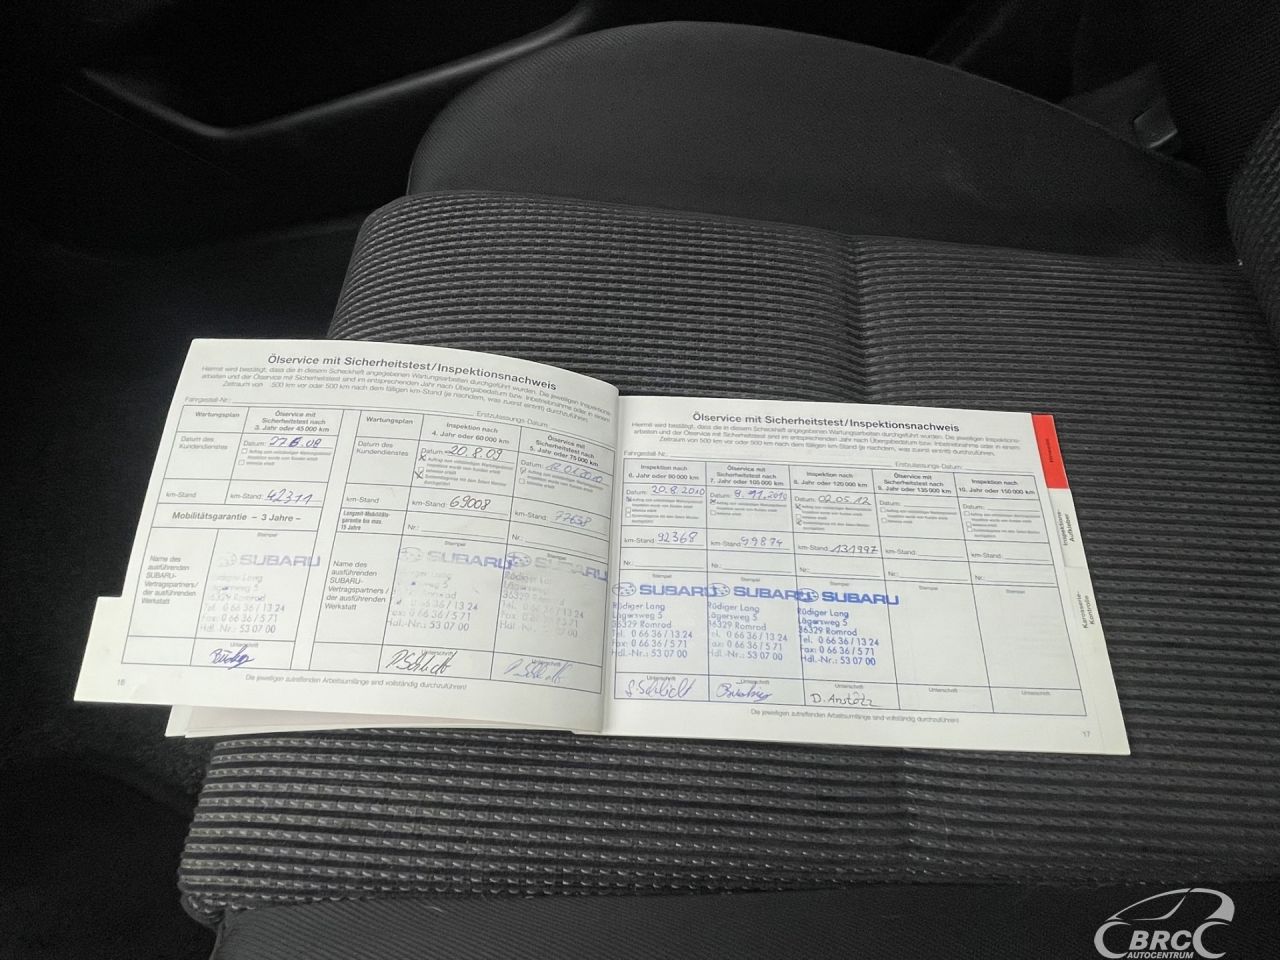 Ölservice mit Sicherheitstest/Inspektionsnachweis
Hiermit wird bestätigt, dass die in diesem Scheckheft angegebenen Wartungsarbeiten durchgeführt wurden. Die jeweiligen Inspektions-
arbeiten und der Ölservice mit Sicherheitstest sind im entsprechenden Jahr nach Übergabedatum bzw. Inbetriebnahme oder in einem
Zeitraum von 500 km vor oder 500 km nach dem fälligen km-Stand (je nachdem, was zuerst eintritt) durchzuführen.
Fahrgestell-Nr.:
Erstzulassungs-Datum
Wartungsplan
Ölservice mit
Sicherheitstest nach
3. Jahr oder 45 000 km
Datum des
Kundendienstes
Datum:
km-Stand
km-Stand: 42311
Mobilitätsgarantie – 3 Jahre –
Name des
ausführenden
SUBARU-
Vertragspartners/
der ausführenden
Werkstatt
Stempel
SUBARU
Rüdiger Lang
36329 Romrod
Tel. 0 66 36 / 13 24
Fax: 0 66 36 / 5 71
Hdl.-Nr.: 53 07 00
Unterschrift
Wartungsplan
Inspektion nach
4. Jahr oder 60 000 km
Ölservice mit
Sicherheitstest nach
5. Jahr oder 75 000 km
Datum des
Kundendienstes
Datum: 20.8.09
Datum:
km-Stand
km-Stand: 69008
km-Stand: 77638
Langzeit-Mobilitäts-
garantie bis max.
15 Jahre
Nr.:
Nr.:
Name des
ausführenden
SUBARU-
Vertragspartners/
der ausführenden
Werkstatt
Stempel
SUBARU
SUBARU
Rüdiger Lang
0 66 36 / 13 24
0 66 36 / 5 71
Hdl.-Nr.: 53 07 00
Unterschrift
Die jeweiligen zutreffenden Arbeitsumfänge sind vollständig durchzuführen!
16
Ölservice mit Sicherheitstest/Inspektionsnachweis
Hiermit wird bestätigt, dass die in diesem Scheckheft angegebenen Wartungsarbeiten durchgeführt wurden. Die jeweiligen Inspektions-
arbeiten und der Ölservice mit Sicherheitstest sind im entsprechenden Jahr nach Übergabedatum bzw. Inbetriebnahme oder in einem
Zeitraum von 500 km vor oder 500 km nach dem fälligen km-Stand (je nachdem, was zuerst eintritt) durchzuführen.
Fahrgestell-Nr.:
Erstzulassungs-Datum:
Inspektion nach
6. Jahr oder 90 000 km
Ölservice mit
Sicherheitstest nach
7. Jahr oder 105 000 km
Inspektion nach
8. Jahr oder 120 000 km
Ölservice mit
Sicherheitstest nach
9. Jahr oder 135 000 km
Inspektion nach
10. Jahr oder 150 000 km
Datum: 20.8.2010
Datum: 9.11.2010
Datum: 02.05.12
Datum:
Datum:
km-Stand: 92368
km-Stand: 99874
km-Stand: 131997
km-Stand:
km-Stand:
Nr.:
Nr.:
Nr.:
Nr.:
Nr.:
Stempel
Stempel
Stempel
Stempel
Stempel
SUBARU
SUBARU
SUBARU
Rüdiger Lang
Lägersweg 5
36329 Romrod
Tel. 0 66 36 / 13 24
Fax: 0 66 36 / 5 71
Hdl.-Nr.: 53 07 00
Rüdiger Lang
Lägersweg 5
36329 Romrod
Tel. 0 66 36 / 13 24
Fax: 0 66 36 / 5 71
Hdl.-Nr.: 53 07 00
Rüdiger Lang
Lägersweg 5
36329 Romrod
Tel. 0 66 36 / 13 24
Fax: 0 66 36 / 5 71
Hdl.-Nr.: 53 07 00
Unterschrift
Unterschrift
Unterschrift
Unterschrift
Unterschrift
D. Anstötz
Die jeweiligen zutreffenden Arbeitsumfänge sind vollständig durchzuführen!
17
Hinweise
Inspektions-
Aufkleber
Karosserie-
Kontrolle
BRC
AUTOCENTRUM